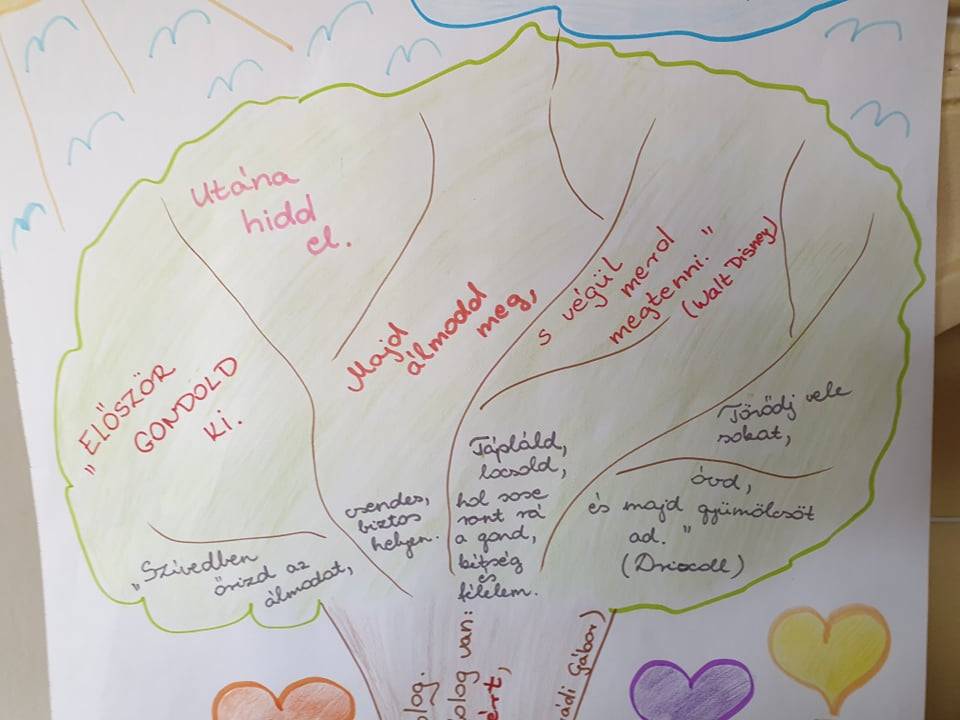 „ELŐSZÖR
GONDOLD
KI.
Utána
hidd
el.
Majd
álmodd
meg,
s végül
merd
megtenni."
(Walt Disney)
„Szívedben
őrizd az
álmodat,
csendes,
biztos
helyen.
Tápláld,
locsold,
hol sose
ront rá
a gond,
kétség
és
félelem.
Törődj vele
sokat,
óvd,
és majd gyümölcsöt
ad."
(Driscoll)
olog.
olog van:
ért,
rádi Gábor)